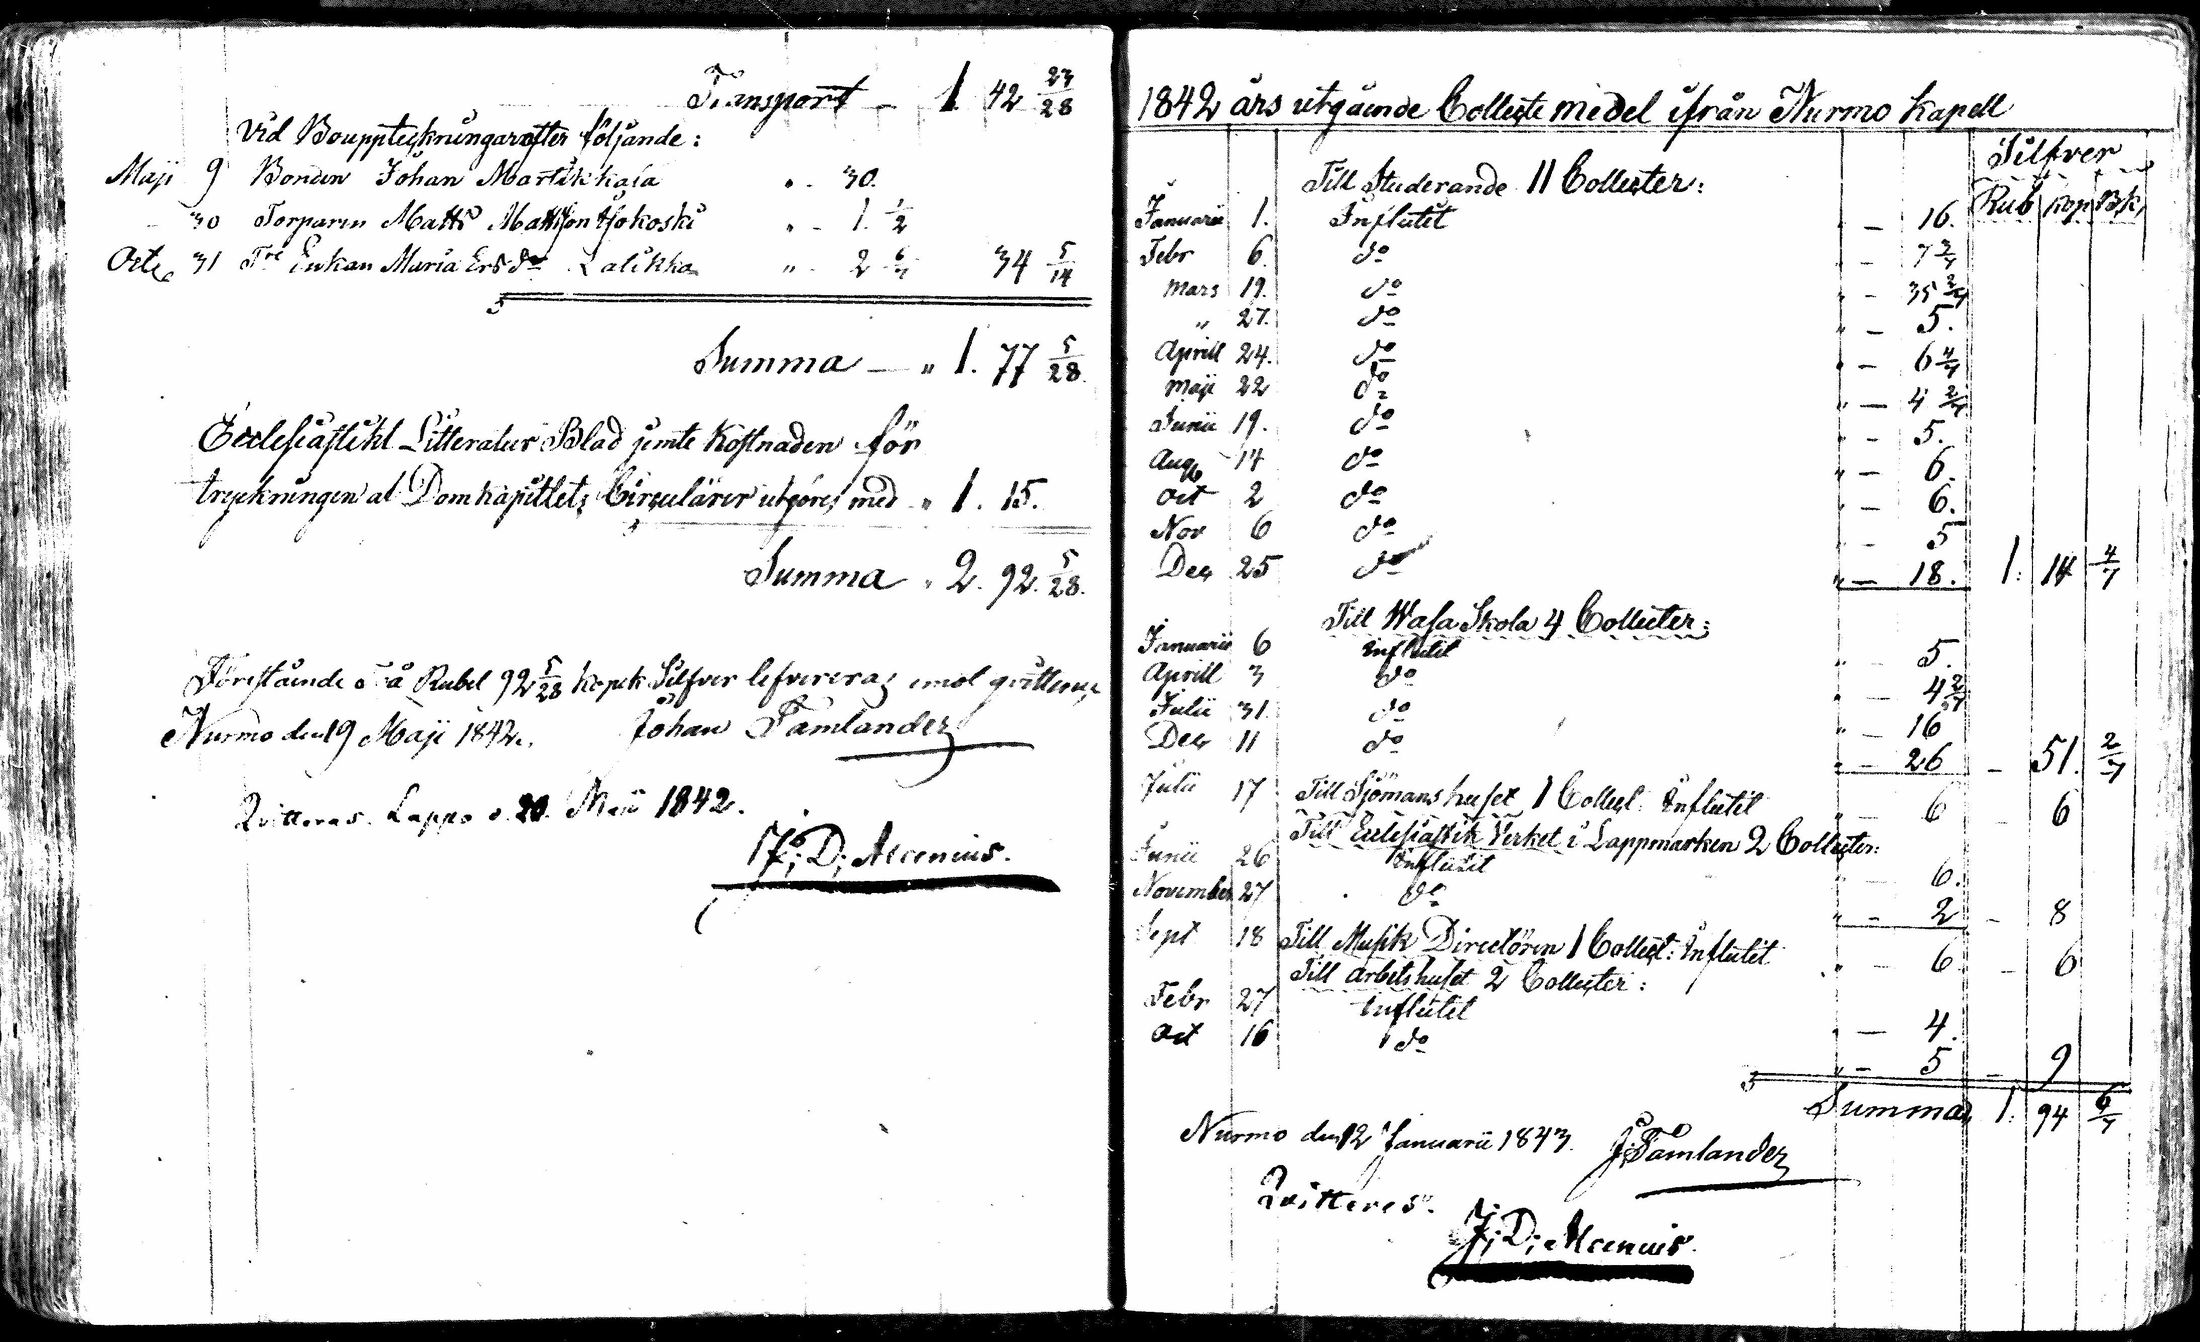 Transport — 1 42 23/28
Vid Bouppteckningar efter följande:
Maji 9 Bonden Johan Martikkala " - 30.
- 30 Torparen Matts Mattsson " - 1. 1/2
Octr 31 Enkan Maria Ersdr Lalikka " - 2 6/7 34 5/14
Summa — " 1. 77 5/28.
Ecclesiastikt Litteratur Blad jemte Kostnaden för
tryckningen af Domkapitlets Circulärer utgöres med " 1. 15.
Summa " 2. 92. 5/28.
Förestående Två Rubel 92 5/28 Kopek Silfver lefvereras emot
Nurmo den 19 Maji 1842. Johan Tamlander
Qvitteras. Lappo d. 20. Maii 1842.
J; D; Alcenius.
1842 års utgående Collecte medel ifrån Nurmo Kapell
Silfver
Till Studerande 11 Collecter: Rub Kop Bk
Januarii 1. Influtit " — 16.
Febr 6. do " — 7 3/7
Mars 19. do " — 35 2/7
" 27. do " — 5.
Aprill 24. do " — 6 4/7
Maji 22 do " — 4 2/7
Junii 19. do " — 5.
Aug 14 do " — 6.
Oct 2 do " — 6.
Nov 6 do " — 5
Dec 25 do " — 18. 1. 14 4/7
Till Wasa Skola 4 Collecter:
Januarii 6 Influtit " — 5.
Aprill 3 do " — 4 2/7
Julii 31. do " — 16
Dec 11 do " — 26 — 51. 2/7
Julii 17 Till Sjömanshuset 1 Collect. Influtit " — 6 — 6
Till Ecclesiastik Verket i Lappmarken 2 Collecter:
Junii 26 Influtit " — 6.
November 27 do " — 2 — 8
Sept 18 Till Musik Directören 1 Collect: Influtit " — 6. — 6
Till Arbetshuset 2 Collecter:
Febr 27 Influtit " — 4.
Oct 16 do " — 5 — 9
Summa 1. 94 6/7
Nurmo den 12 Januarii 1843. J. Tamlander
Qvitteres.
J; D; Alcenius.